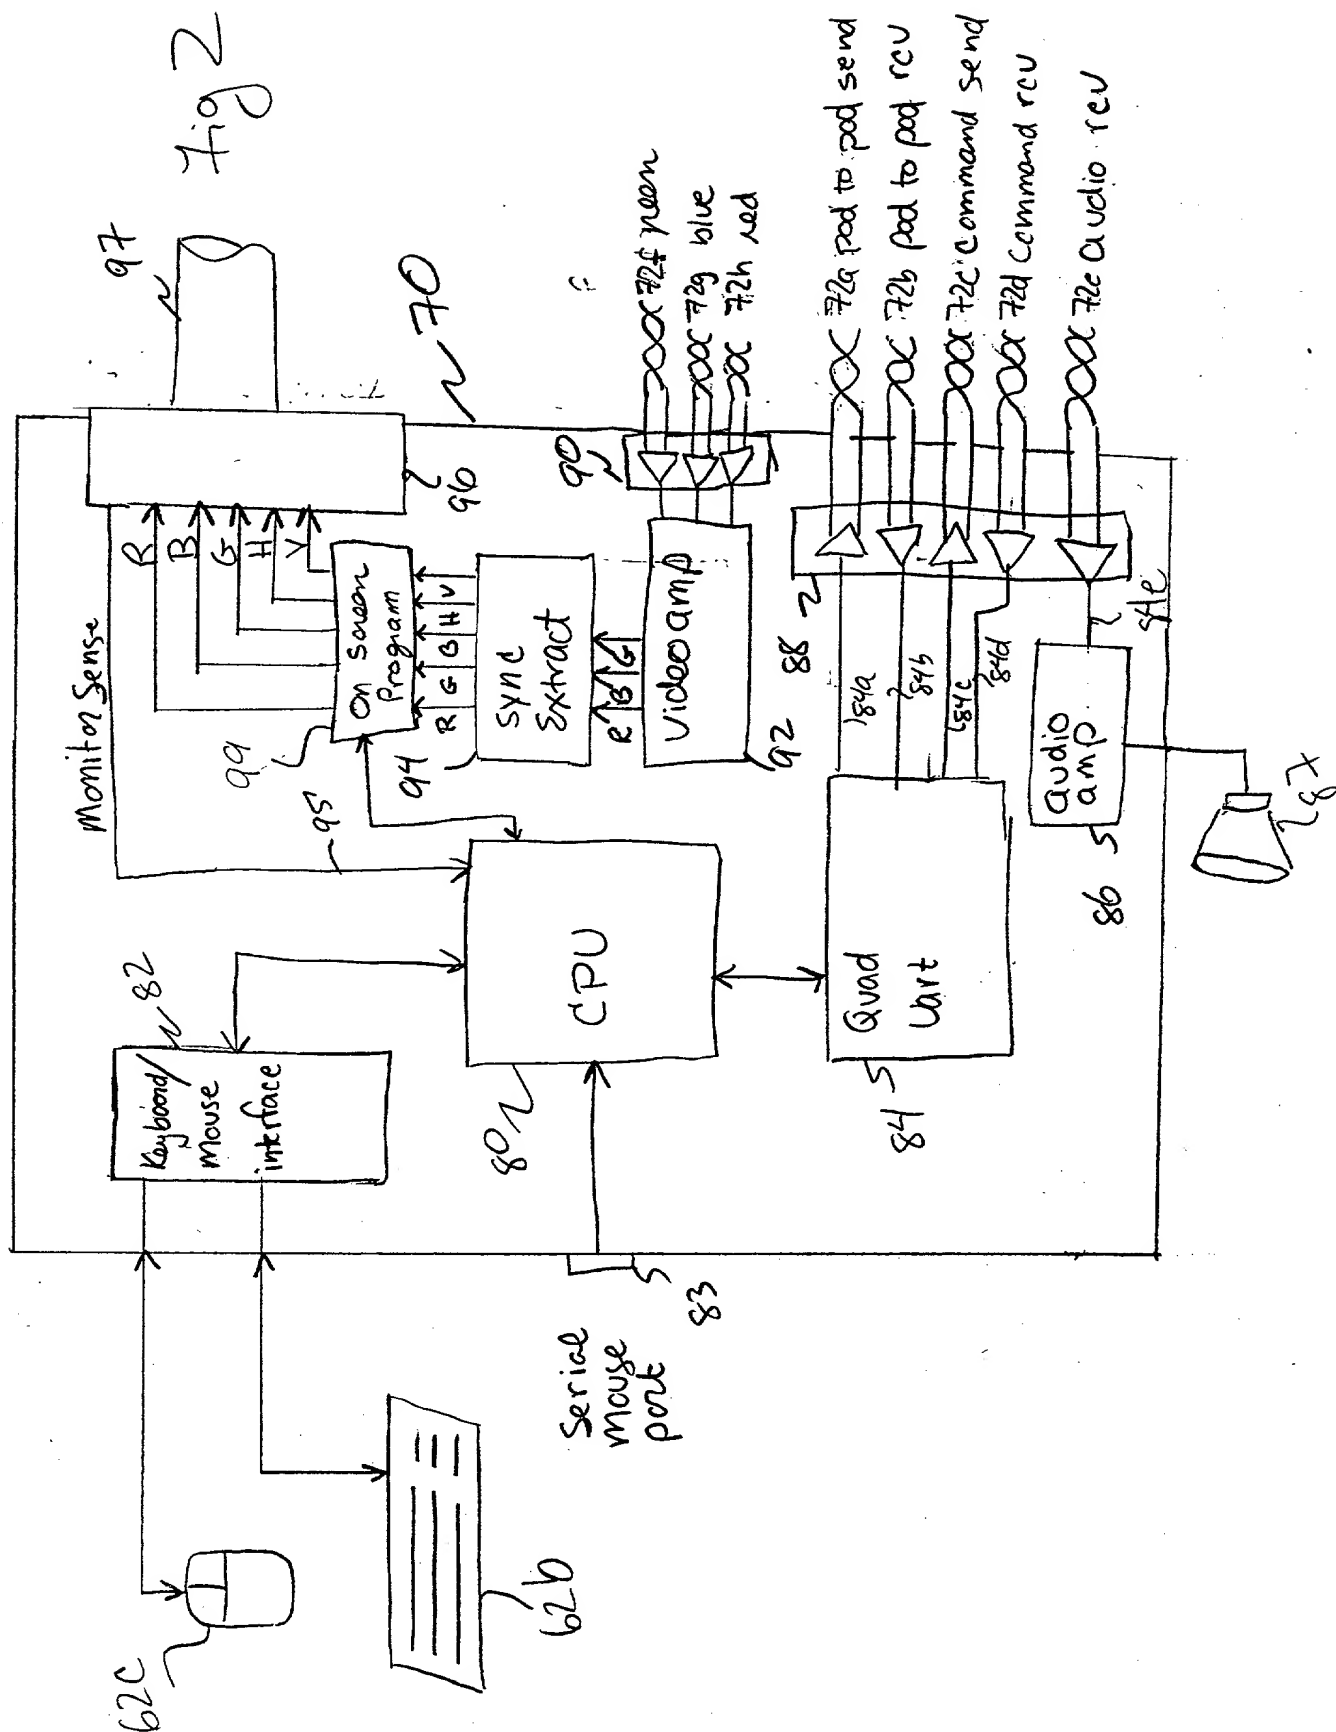 Fig 2
97
70
96
Monitor Sense
R
B
G
H
V
On Screen
Program
99
R G B H V
Sync
Extract
94
R B G
Videoamp
92
90
72f green
72g blue
72h red
72a pod to pod send
72b pod to pod rcv
72c command send
72d command rcv
72e audio rcv
88
84a
84b
84c
84d
84e
audio
amp
86
87
95
CPU
80
Quad
Uart
84
Keyboard/
Mouse
interface
82
Serial
mouse
port
83
62c
62b